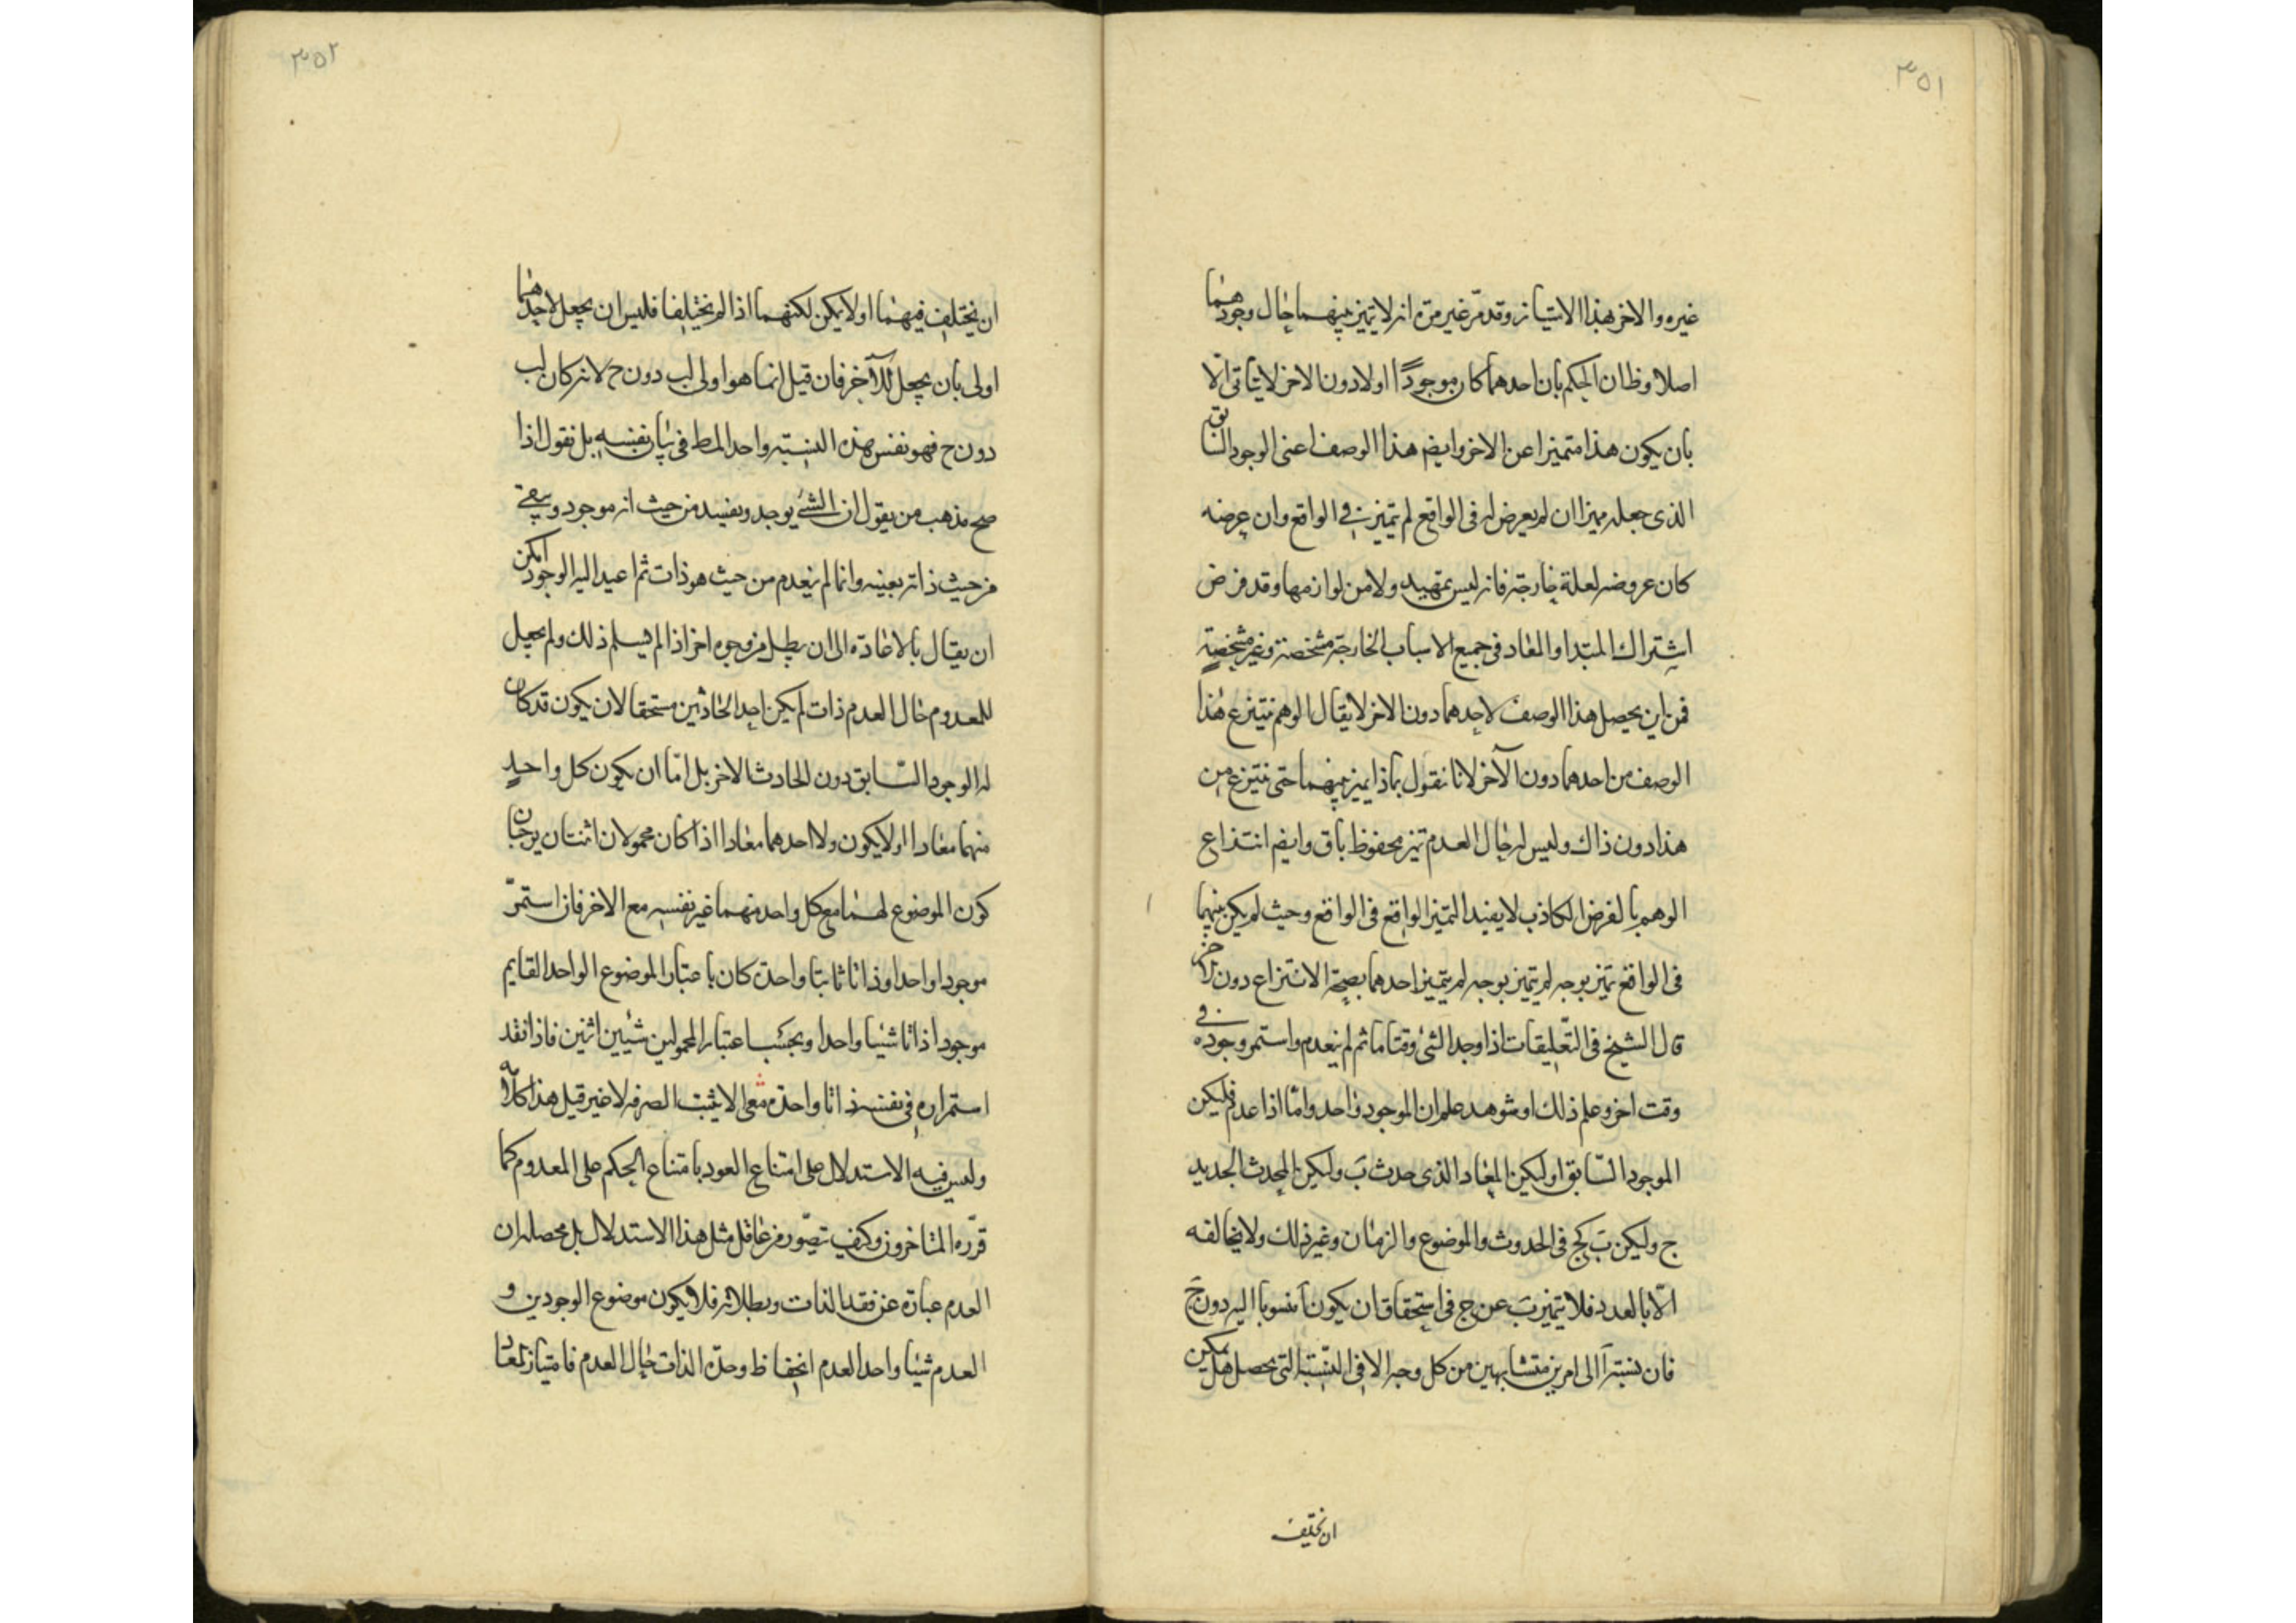 ٣٥١
غيره والاخر بهذا الامتياز وقد مرّ غير مرّة انه لا تميز بينهما حال وجودهما
اصلا وظ ان الحكم بان احدهما كان موجودًا اولا دون الاخر لا يتاتى الّا
بان يكون هذا متميزا عن الاخر وايضم هذا الوصف اعنى الوجود السابق
الذى جعله مميزا ان لم يعرض له فى الواقع لم تتميز به فى الواقع وان عرضه
كان عروضه لعلة خارجة فانه ليس بمهية ولا من لوازمها وقد فرض
اشتراك المبتدا والمعاد فى جميع الاسباب الخارجة مشخصة وغير مشخصة
فمن اين يحصل هذا الوصف لاحدهما دون الاخر لا يقال الوهم ينتزع هذا
الوصف من احدهما دون الآخر لانا نقول بماذا يميز بينهما حتى ينتزع من
هذا دون ذاك وليس له حال العدم تميز محفوظ باق وايضم انتذاع
الوهم بالفرض الكاذب لا يفيد التميز الواقع فى الواقع وحيث لم يكن بينهما
فى الواقع تميز بوجه لم يتميز بوجه لم يتميز احدهما بصحة الانتزاع دون الآخر
قال الشيخ فى التّعليقات اذا وجد الشئ وقتا ما ثم لم ينعدم واستمر وجوده فى
وقت اخر وعلم ذلك او شوهد علم ان الموجود واحد وامّا اذا عدم فليكن
الموجود السّابق ا وليكن المعاد الذى حدث بَ وليكن المحدث الجديد
ج وليكن بَ كج فى الحدوث والموضوع والزمان وغير ذلك ولا يخالفه
الّا بالعدد فلا يتميز بَ عن ج فى استحقاق ان يكون آ منسوبا اليه دون جَ
فان نسبة آ الى امرين متشابهين من كل وجه الا فى النّسبة التى يحصل هل يمكن
ان يختلف
٣٥٢
ان يختلف فيهما او لا يمكن لكنهما اذا لم يختلفا فليس ان يجعل لاحدهما
اولى بان يجعل للآخر فان قيل انما هو اولى لب دون ح لانه كان لب
دون ح فهو نفس هذه النسبة واحد المط فى بيان نفسه بل نقول اذا
صح مذهب من يقول ان الشئ يوجد ويفسد من حيث انه موجود ويبقى
من حيث ذاته بعينه وانما لم ينعدم من حيث هو ذات ثم اعيد اليه الوجود امكن
ان يقال بالاعادة الى ان يبطل من وجوه اخر اذا لم يسلم ذلك ولم يجعل
للمعدوم حال العدم ذات لم يكن احد الحادثين مستحقا لان يكون قد كان
له الوجود السّابق دون الحادث الاخر بل امّا ان يكون كل واحد
منهما معادا او لا يكون ولا احدهما معادا اذا كان محمولان اثنتان يوجبان
كون الموضوع لهما مع كل واحد منهما غير نفسه مع الاخر فان استمرّ
موجودا واحدا وذاتا ثابتا واحدة كان باعتبار الموضوع الواحد القايم
موجودا ذاتا شيئا واحدا وبحسب اعتبار المحمولين شيئين اثنين فاذا نقد
استمراره فى نفسه ذاتا واحدة بقى الاثنينية الصرفه لا غير قيل هذا كلامه
وليس فيه الاستدلال على امتناع العود بامتناع الحكم على المعدوم كما
قرّره المتاخرون وكيف تصوّر من عاقل مثل هذا الاستدلال بل محصله ان
العدم عبارة عن فقد الذات وبطلانه فلا يكون موضوع الوجودين و
العدم شيئا واحدا لعدم انحفاظ وحدة الذات حال العدم فامتياز المعاد